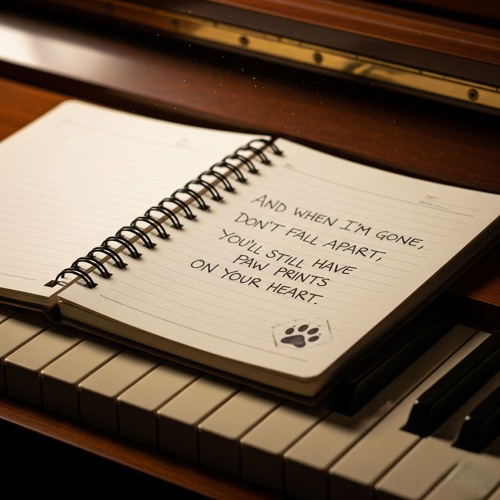 AND WHEN I'M GONE,
DON'T FALL APART,
YOU'LL STILL HAVE
PAW PRINTS
ON YOUR HEART.